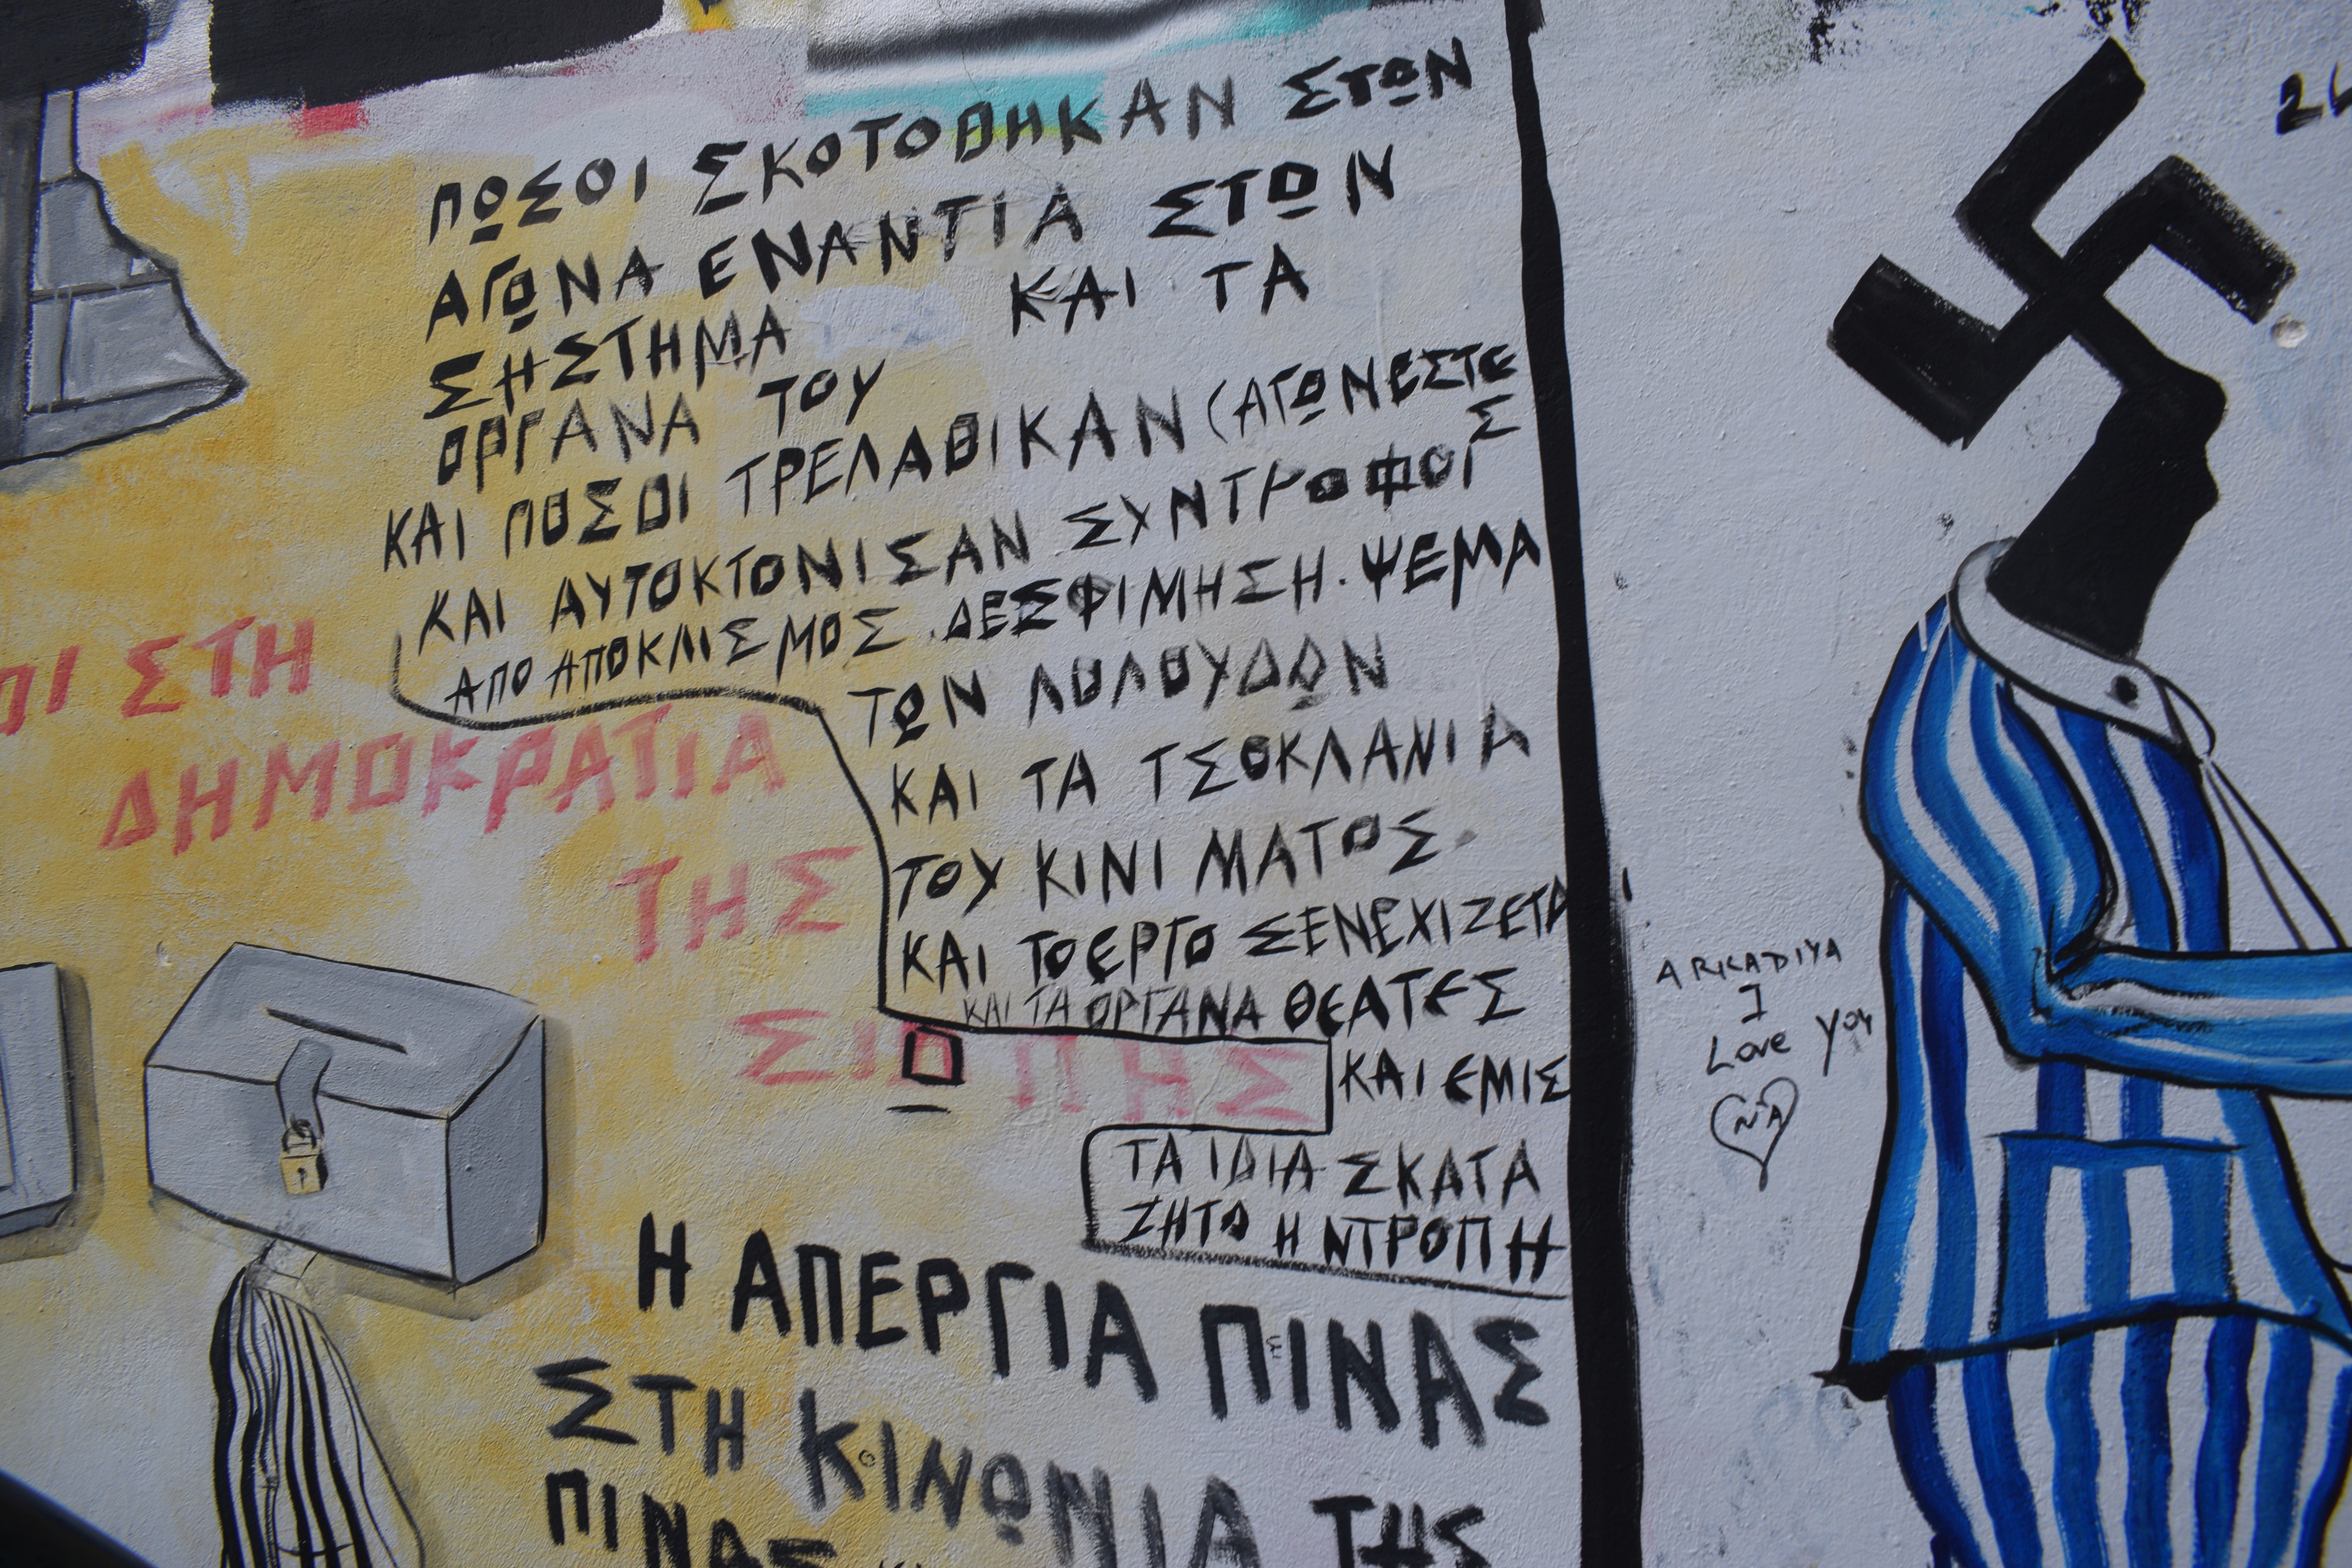 ΠΩΣΟΙ ΣΚΟΤΟΘΗΚΑΝ ΣΤΩΝ
ΑΓΩΝΑ ΕΝΑΝΤΙΑ ΣΤΩΝ
ΣΗΣΤΗΜΑ ΚΑΙ ΤΑ
ΟΡΓΑΝΑ ΤΟΥ
ΚΑΙ ΠΟΣΟΙ ΤΡΕΛΑΘΙΚΑΝ (ΑΓΩΝΕΣΤΕΣ
ΚΑΙ ΑΥΤΟΚΤΟΝΙΣΑΝ ΣΥΝΤΡΟΦΟΙ
ΑΠΟ ΑΠΟΚΛΙΣΜΟΣ. ΔΕΣΦΙΜΗΣΗ. ΨΕΜΑ
ΤΩΝ ΛΟΛΟΥΔΩΝ
ΚΑΙ ΤΑ ΤΣΟΚΛΑΝΙΑ
ΤΟΥ ΚΙΝΙΜΑΤΟΣ.
ΚΑΙ ΤΟ ΕΡΓΟ ΣΕΝΕΧΙΖΕΤΑΙ
ΚΑΙ ΤΑ ΟΡΓΑΝΑ ΘΕΑΤΕΣ
ΚΑΙ ΕΜΙΣ
ΤΑ ΙΔΙΑ ΣΚΑΤΑ
ΖΗΤΟ Η ΝΤΡΟΠΗ
ΟΙ ΣΤΗ
ΔΗΜΟΚΡΑΤΙΑ
ΤΗΣ
ΣΙΩΠΗΣ
Η ΑΠΕΡΓΙΑ ΠΙΝΑΣ
ΣΤΗ ΚΙΝΩΝΙΑ ΤΗΣ
ΠΙΝΑΣ
ARKADIYA
I
Love you
NA